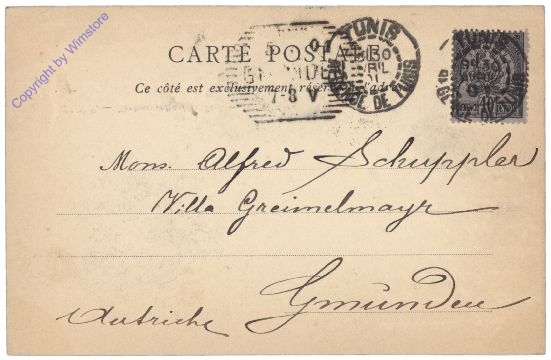 Copyright by Wimstore
CARTE POSTALE
Ce côté est exclusivement réservé à l'adre
TUNIS
GMUNDEN
7-8 V
TUNIS
Mons. Alfred Schuppler
Villa Greimelmayr
Gmunden
Autriche